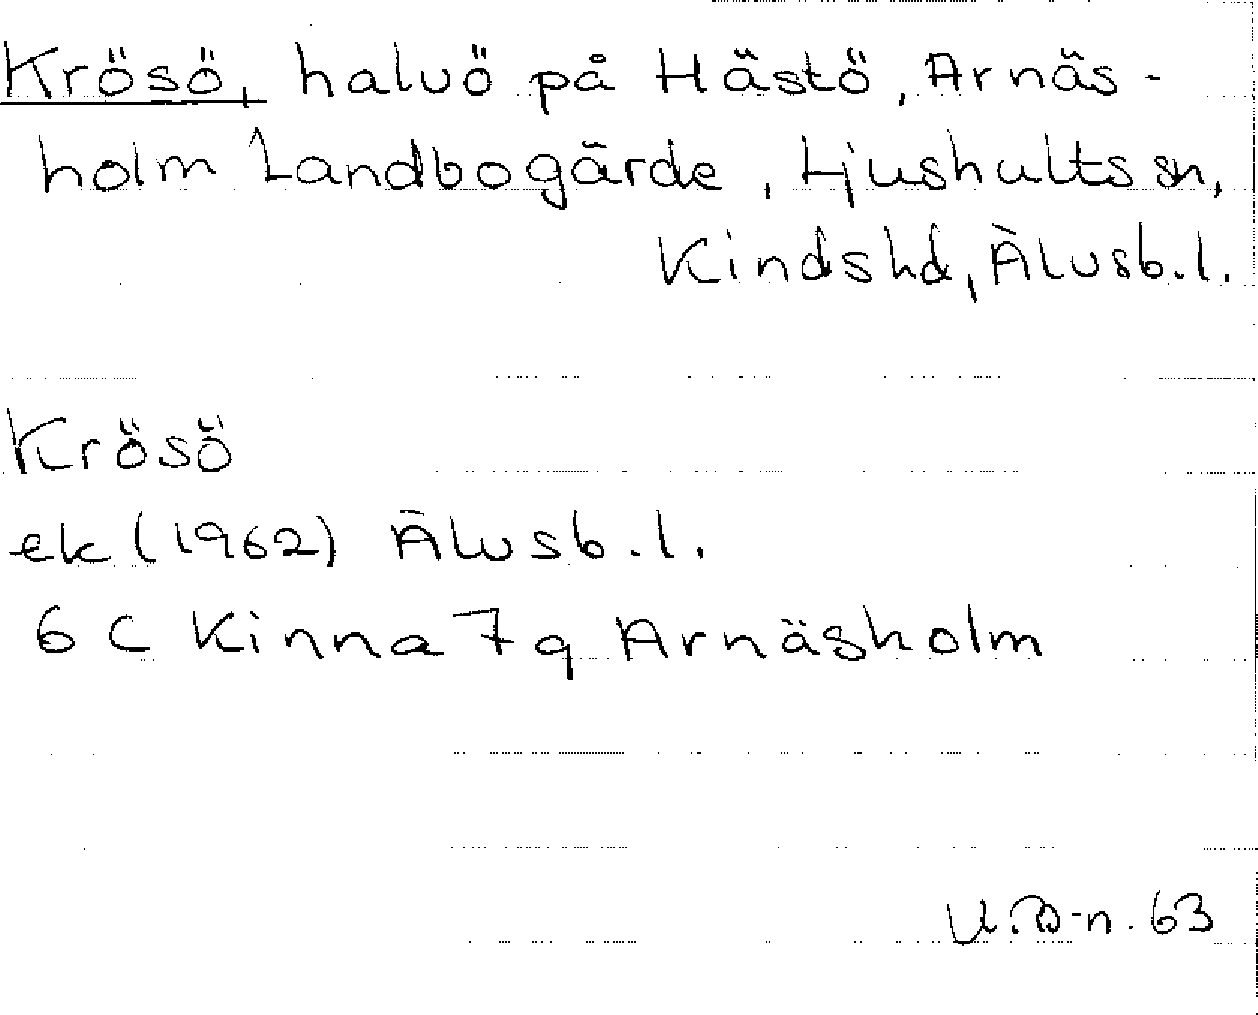 Krösö, halvö på Hästö, Arnäs-
holm Landbogärde, Ljushults sn,
Kinds hd, Älvsb. l.
Krösö
ek (1962) Älvsb. l.
6 C Kinna 7 q Arnäsholm
63